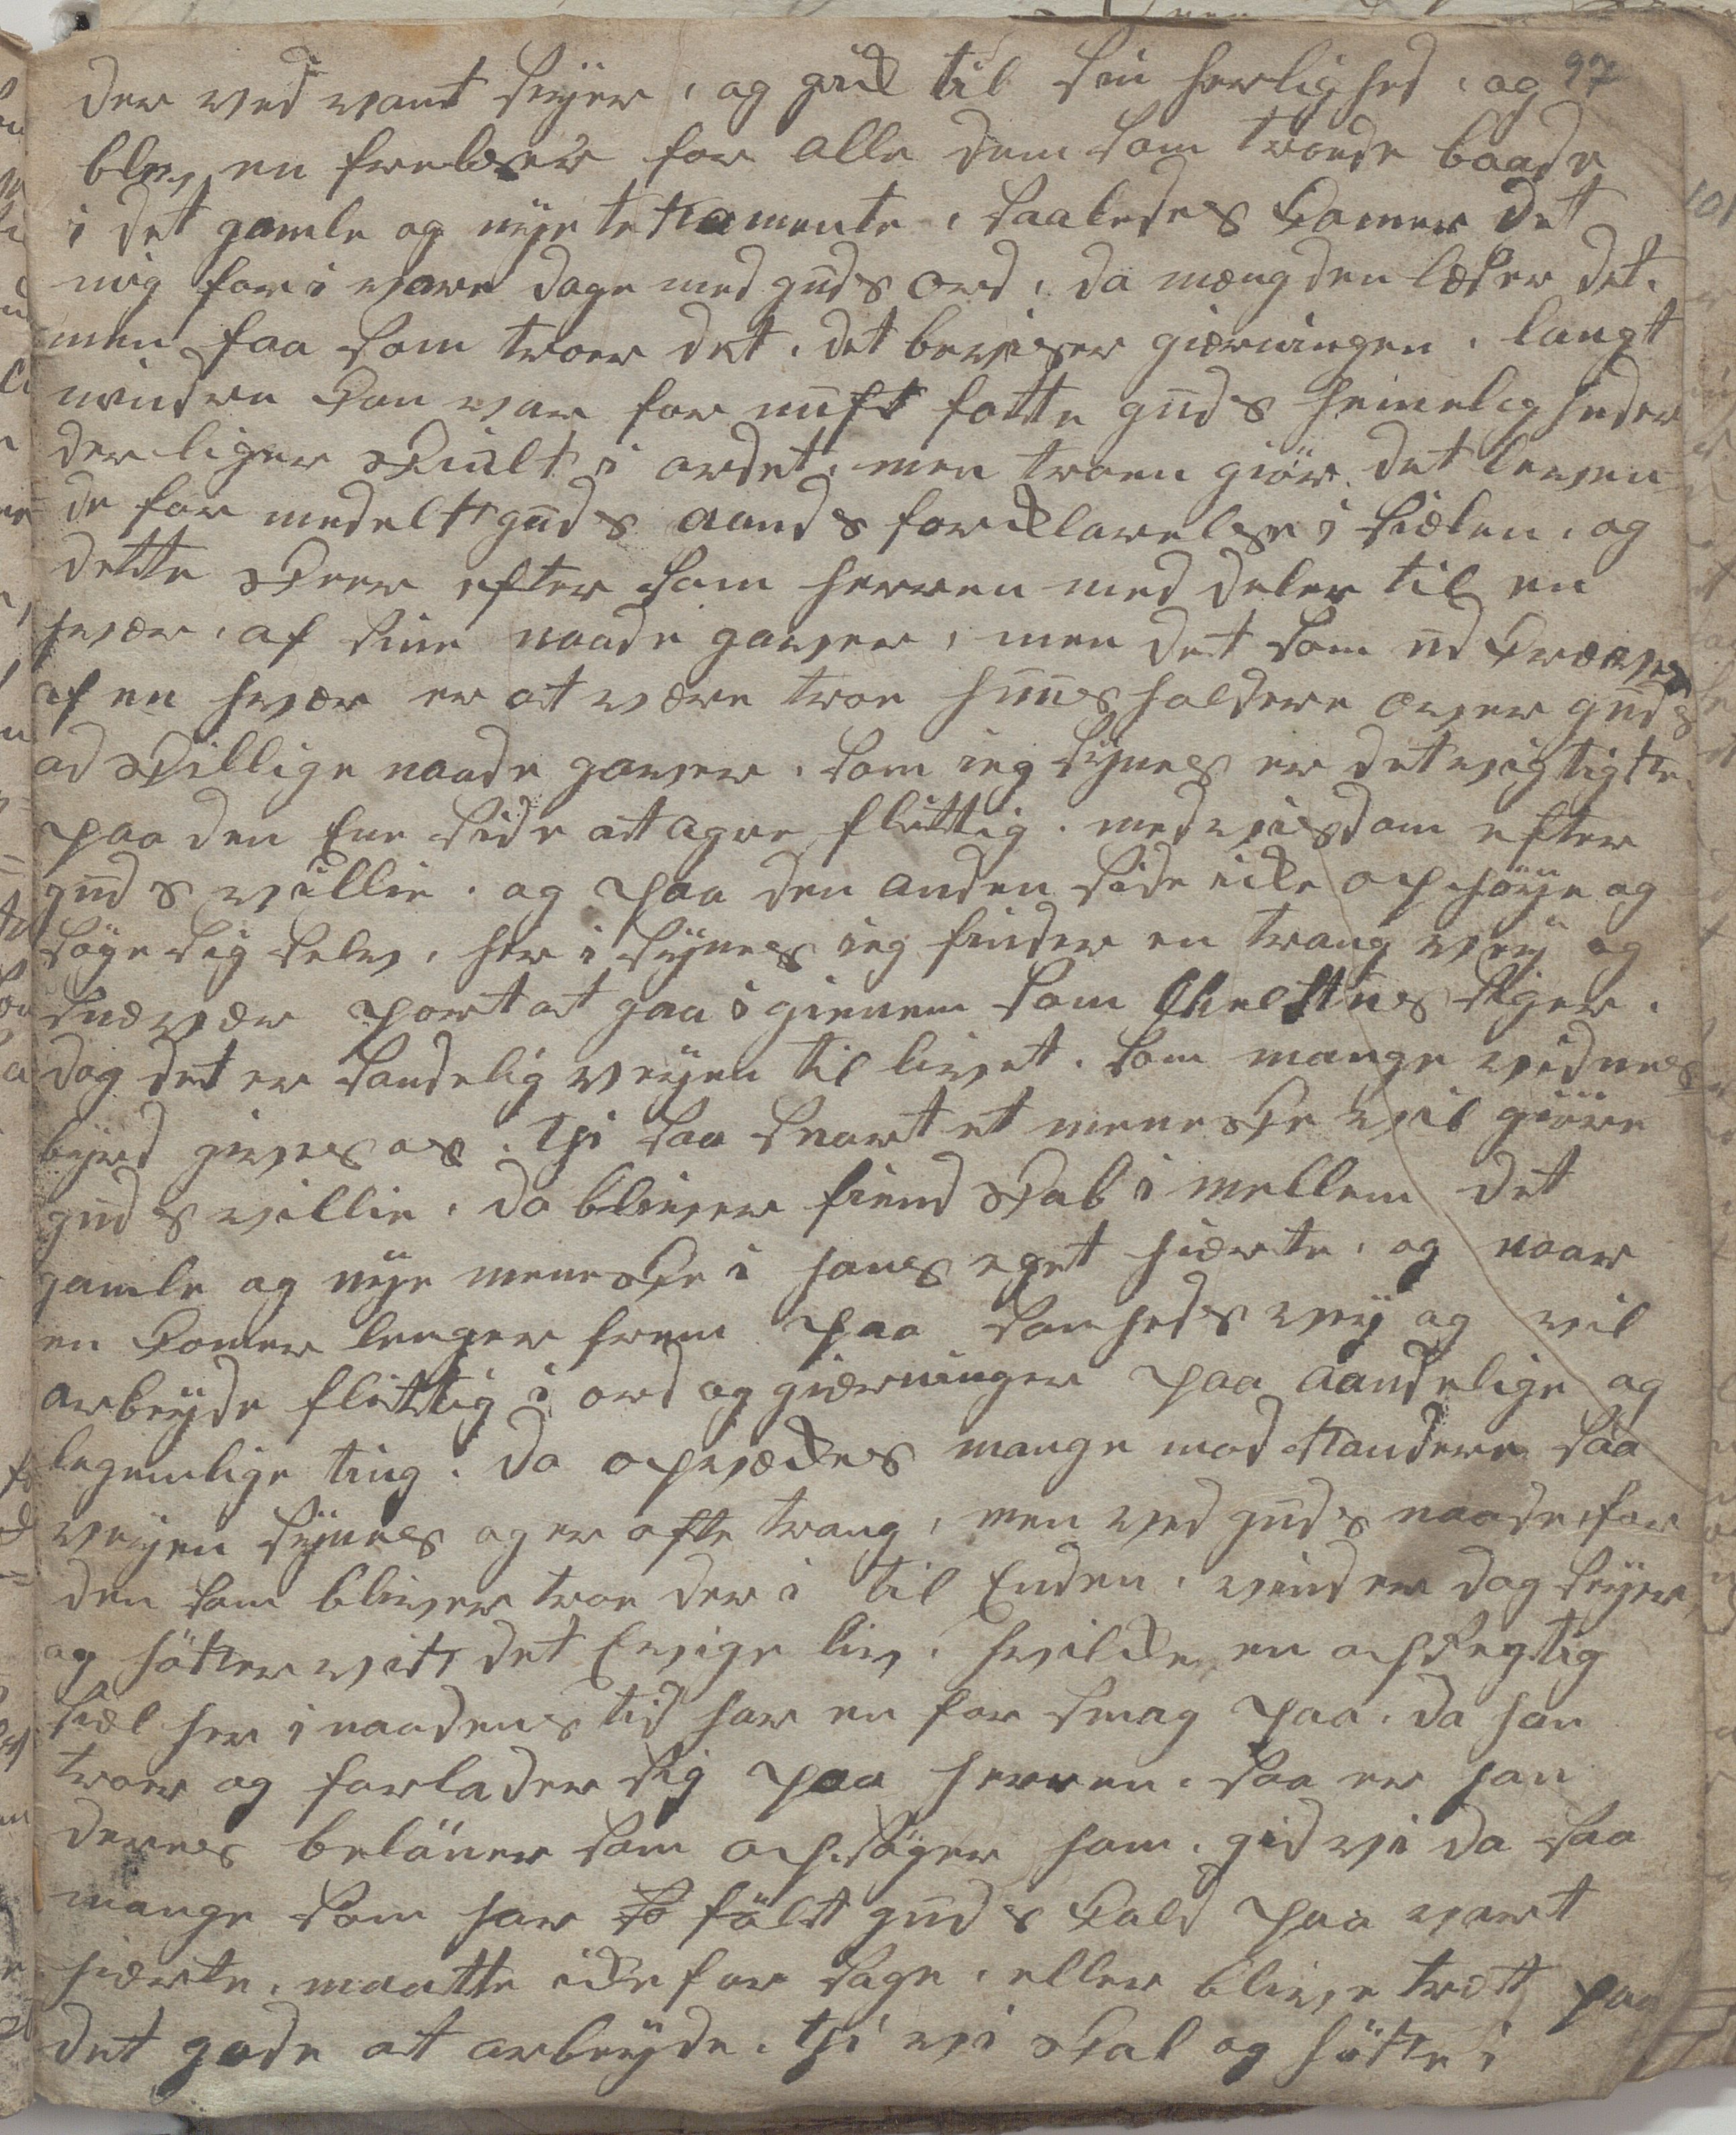 der ved vant seyer, og gik til sin herlighed, og 97
blev en frelser for alle dem som troede baade
i det gamle og nye testamente, saaledes komer det
mig for i vore dage med guds ord, da mængden læser det,
men faa som troer det, det beviser gierningen, langt
mindre kan vor for nuft fatte guds hemelig heder
der liger skiult i ordet, men troen giör det leven-
de for medelst guds aands for klarelse i siælen, og
dette skeer efter som herren med deler til en
hvær, af sine naade gaver, men det som ud kræves
af en hvær er at være troe huus holdere over guds
ad skillige naade gaver, som ieg synes er det vigtigste
paa den Ene side at agre flittig med viisdom efter
guds villie, og paa den anden side ike ophöye og
söge sig selv, her i synes ieg finder en trang vey og
snæver port at gaa i gienem som Chrestus siger,
dog det er sandelig veyen til livet, som mange vidnes
byrd gives os. Thi saa snart et meneske vil giöre
guds villie, da bliver fiend skab i mellem det
gamle og nye meneske i hans eget hierte, og naar
en komer lenger frem paa sanheds vey og vil
arbeyde flittig i ord og gierninger paa aandelige og
legemlige ting, da opvækes mange mod standere saa
veyen synes og er ofte trang, men ved guds naade, for
den som bliver troe der i til Enden, vinder dog seyer
og höster vist det Evige liv, hvilke en opregtig
siæl her i naadens tid har en for smag paa, da han
troer og forlader sig paa herren, saa er han
deres belöner som op söger ham, gid vi da saa
mange som har fölt guds kald paa vort
hierte, maatte ike for sage, eller blive træt paa
det gode at arbeyde, thi vi skal og höste i